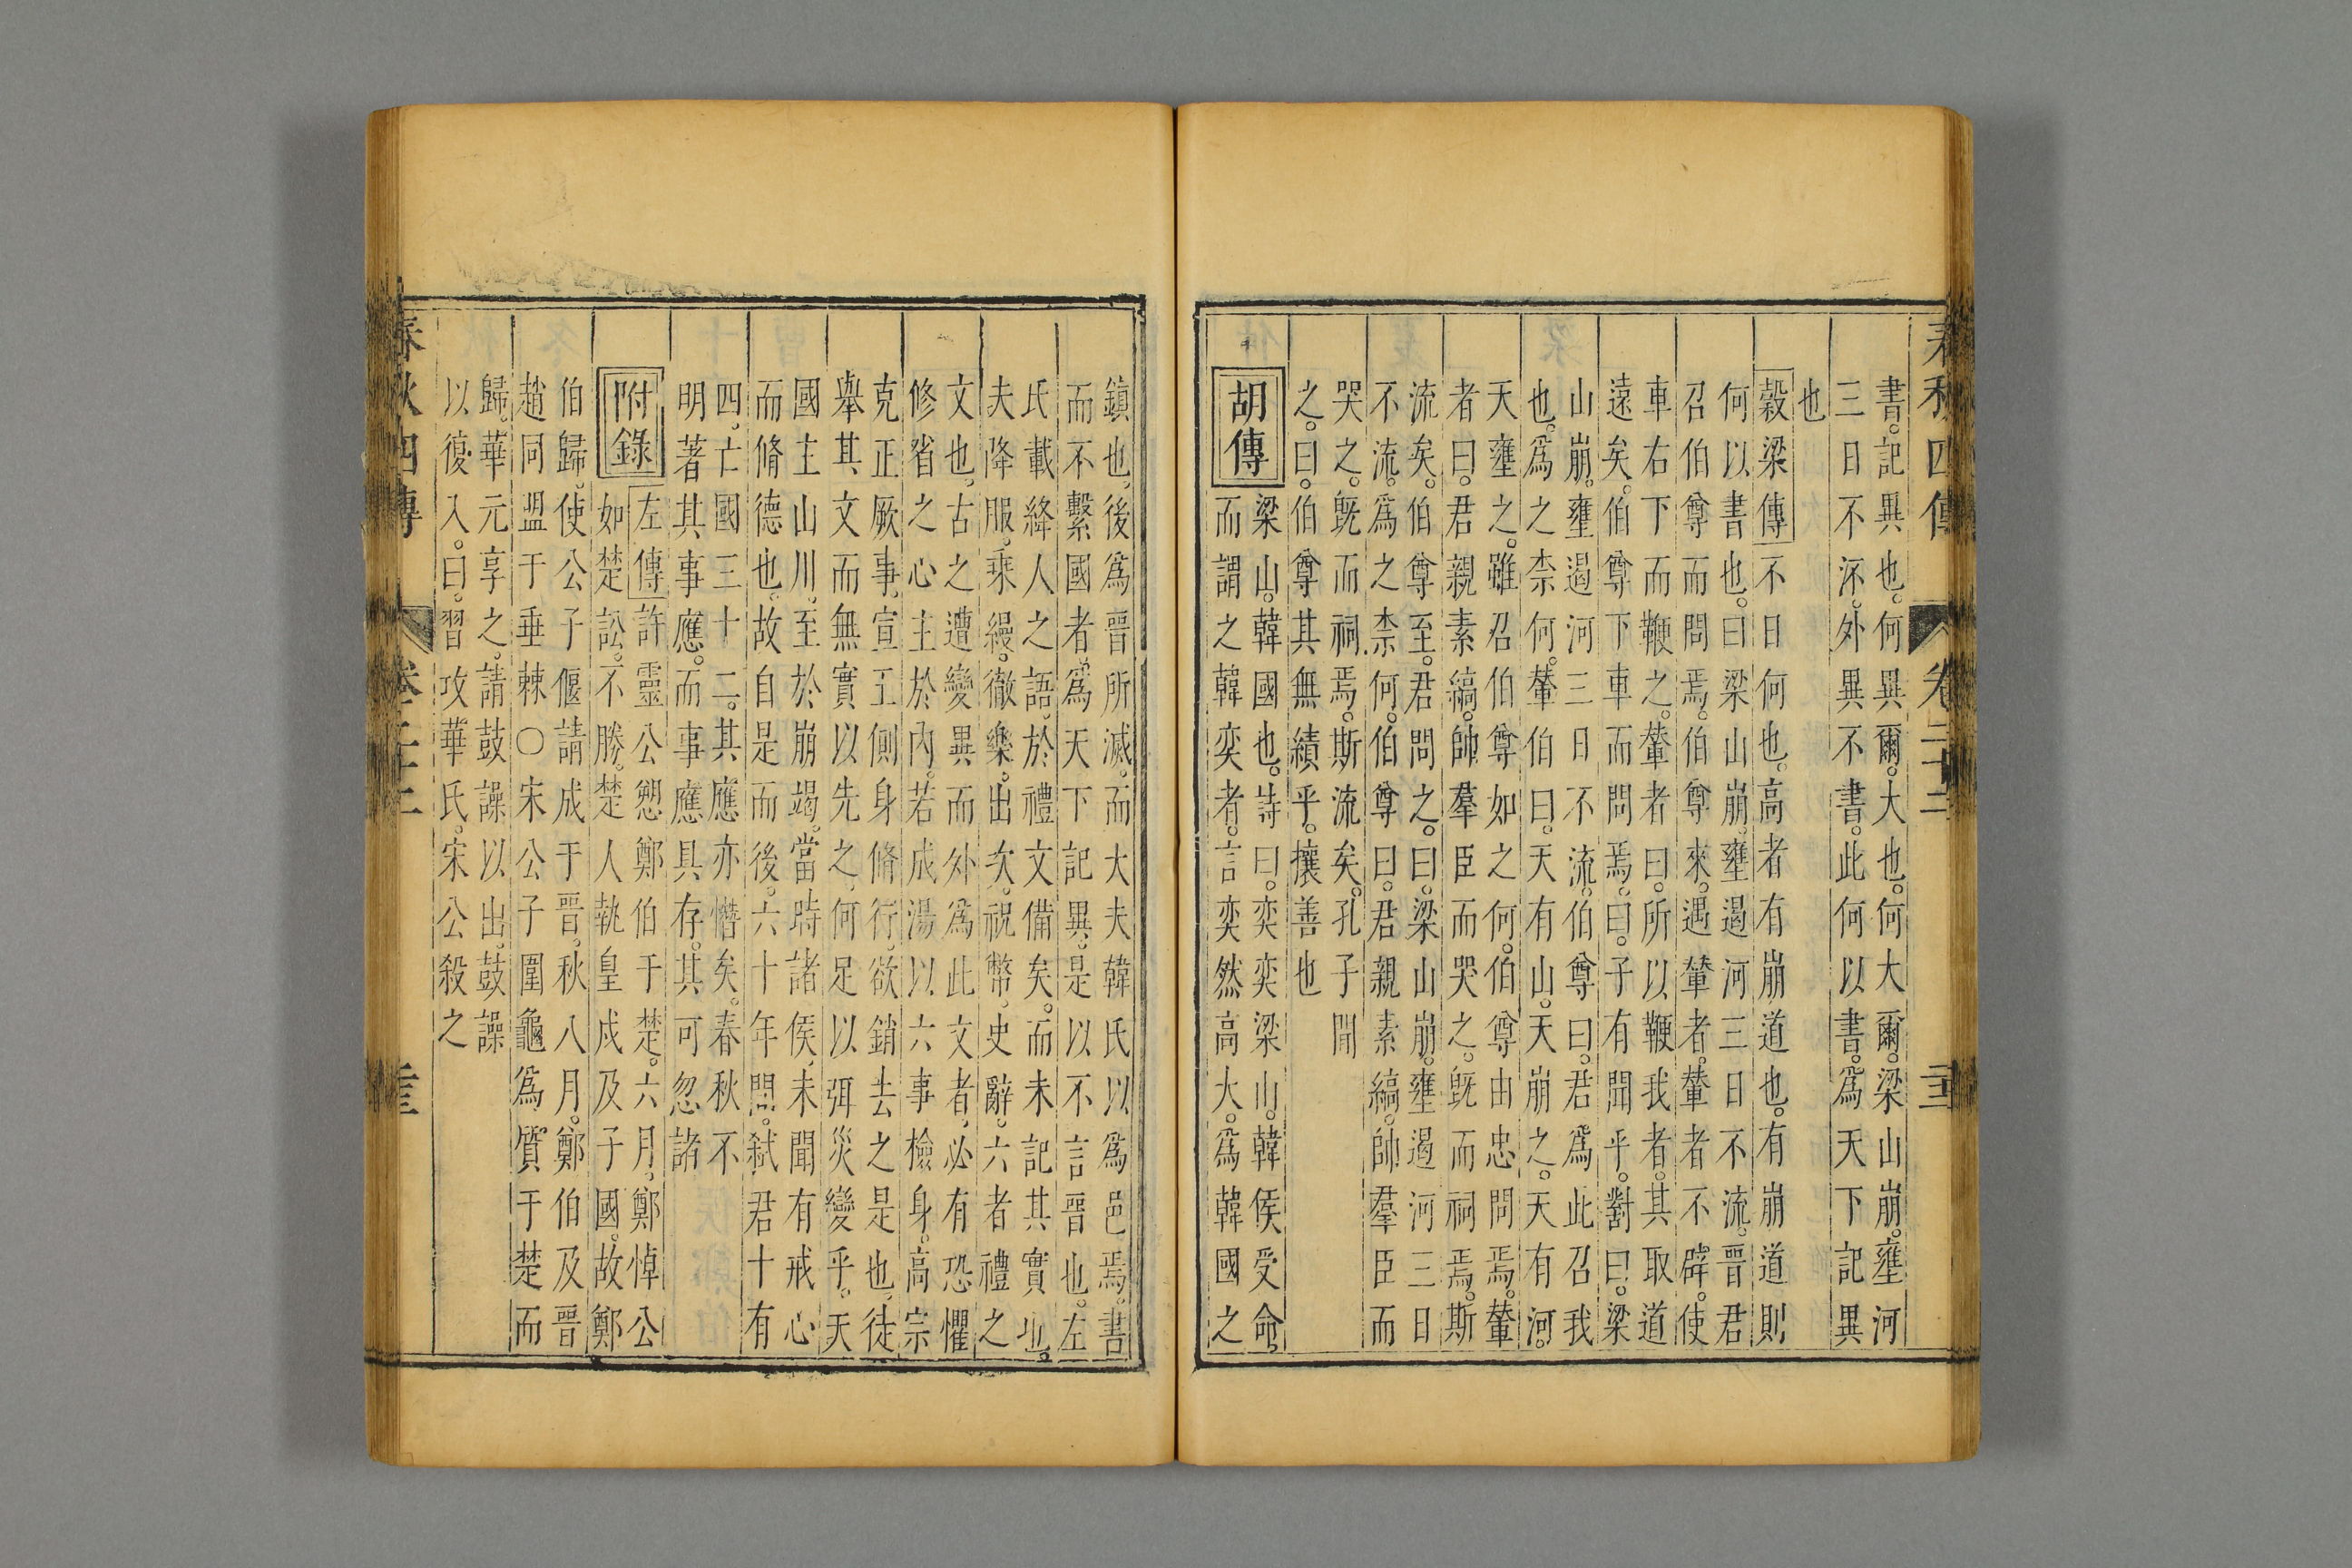 春秋四傳 卷二十二
書。記異也。何異爾。大也。何大爾。梁山崩。壅河
三日不㳅。外異不書。此何以書。爲天下記異
也
穀梁傳 不日何也。高者有崩道也。有崩道則
何以書也。曰梁山崩。壅遏河三日不流。晉君
召伯尊而問焉。伯尊來。遇輦者。輦者不辟。使
車右下而鞭之。輦者曰。所以鞭我者。其取道
遠矣。伯尊下車而問焉。曰。子有聞乎。對曰。梁
山崩。壅遏河三日不流。伯尊曰。君爲此召我
也。爲之柰何。輦者曰。天有山。天崩之。天有河。
天壅之。雖召伯尊如之何。伯尊由忠問焉。輦
者曰。君親素縞。帥羣臣而哭之。旣而祠焉。斯
流矣。伯尊至。君問之。曰。梁山崩。壅遏河三日
不流。爲之柰何。伯尊曰。君親素縞。帥羣臣而
哭之。旣而祠焉。斯流矣。孔子聞
之。曰。伯尊其無績乎。攘善也
胡傳 梁山。韓國也。詩曰。奕奕梁山。韓侯受命。
而謂之韓奕者。言奕然高大。爲韓國之
鎮也。後爲晉所滅。而大夫韓氏以爲邑焉。書
而不繫國者。爲天下記異。是以不言晉也。左
氏載絳人之語。於禮文備矣。而未記其實也。
夫降服。乘縵。徹樂。出次。祝幣。史辭。六者禮之
文也。古之遭變異而外爲此文者。必有恐懼
修省之心主於內。若成湯以六事檢身。高宗
克正厥事。宣王側身脩行。欲銷去之是也。徒
舉其文而無實以先之。何足以弭災變乎。天
國主山川。至於崩竭。當時諸侯未聞有戒心
而脩德也。故自是而後。六十年間。弑君十有
四。亡國三十二。其應亦憯矣。春秋不
明著其事應。而事應具存。其可忽諸
附錄 左傳 許靈公愬鄭伯于楚。六月。鄭悼公
如楚訟。不勝。楚人執皇戌及子國。故鄭
伯歸。使公子偃請成于晉。秋八月。鄭伯及晉
趙同盟于垂棘〇宋公子圍龜爲質于楚而
歸。華元享之。請鼓譟以出。鼓譟
以復入。曰。習攻華氏。宋公殺之
春秋四傳 卷二十二